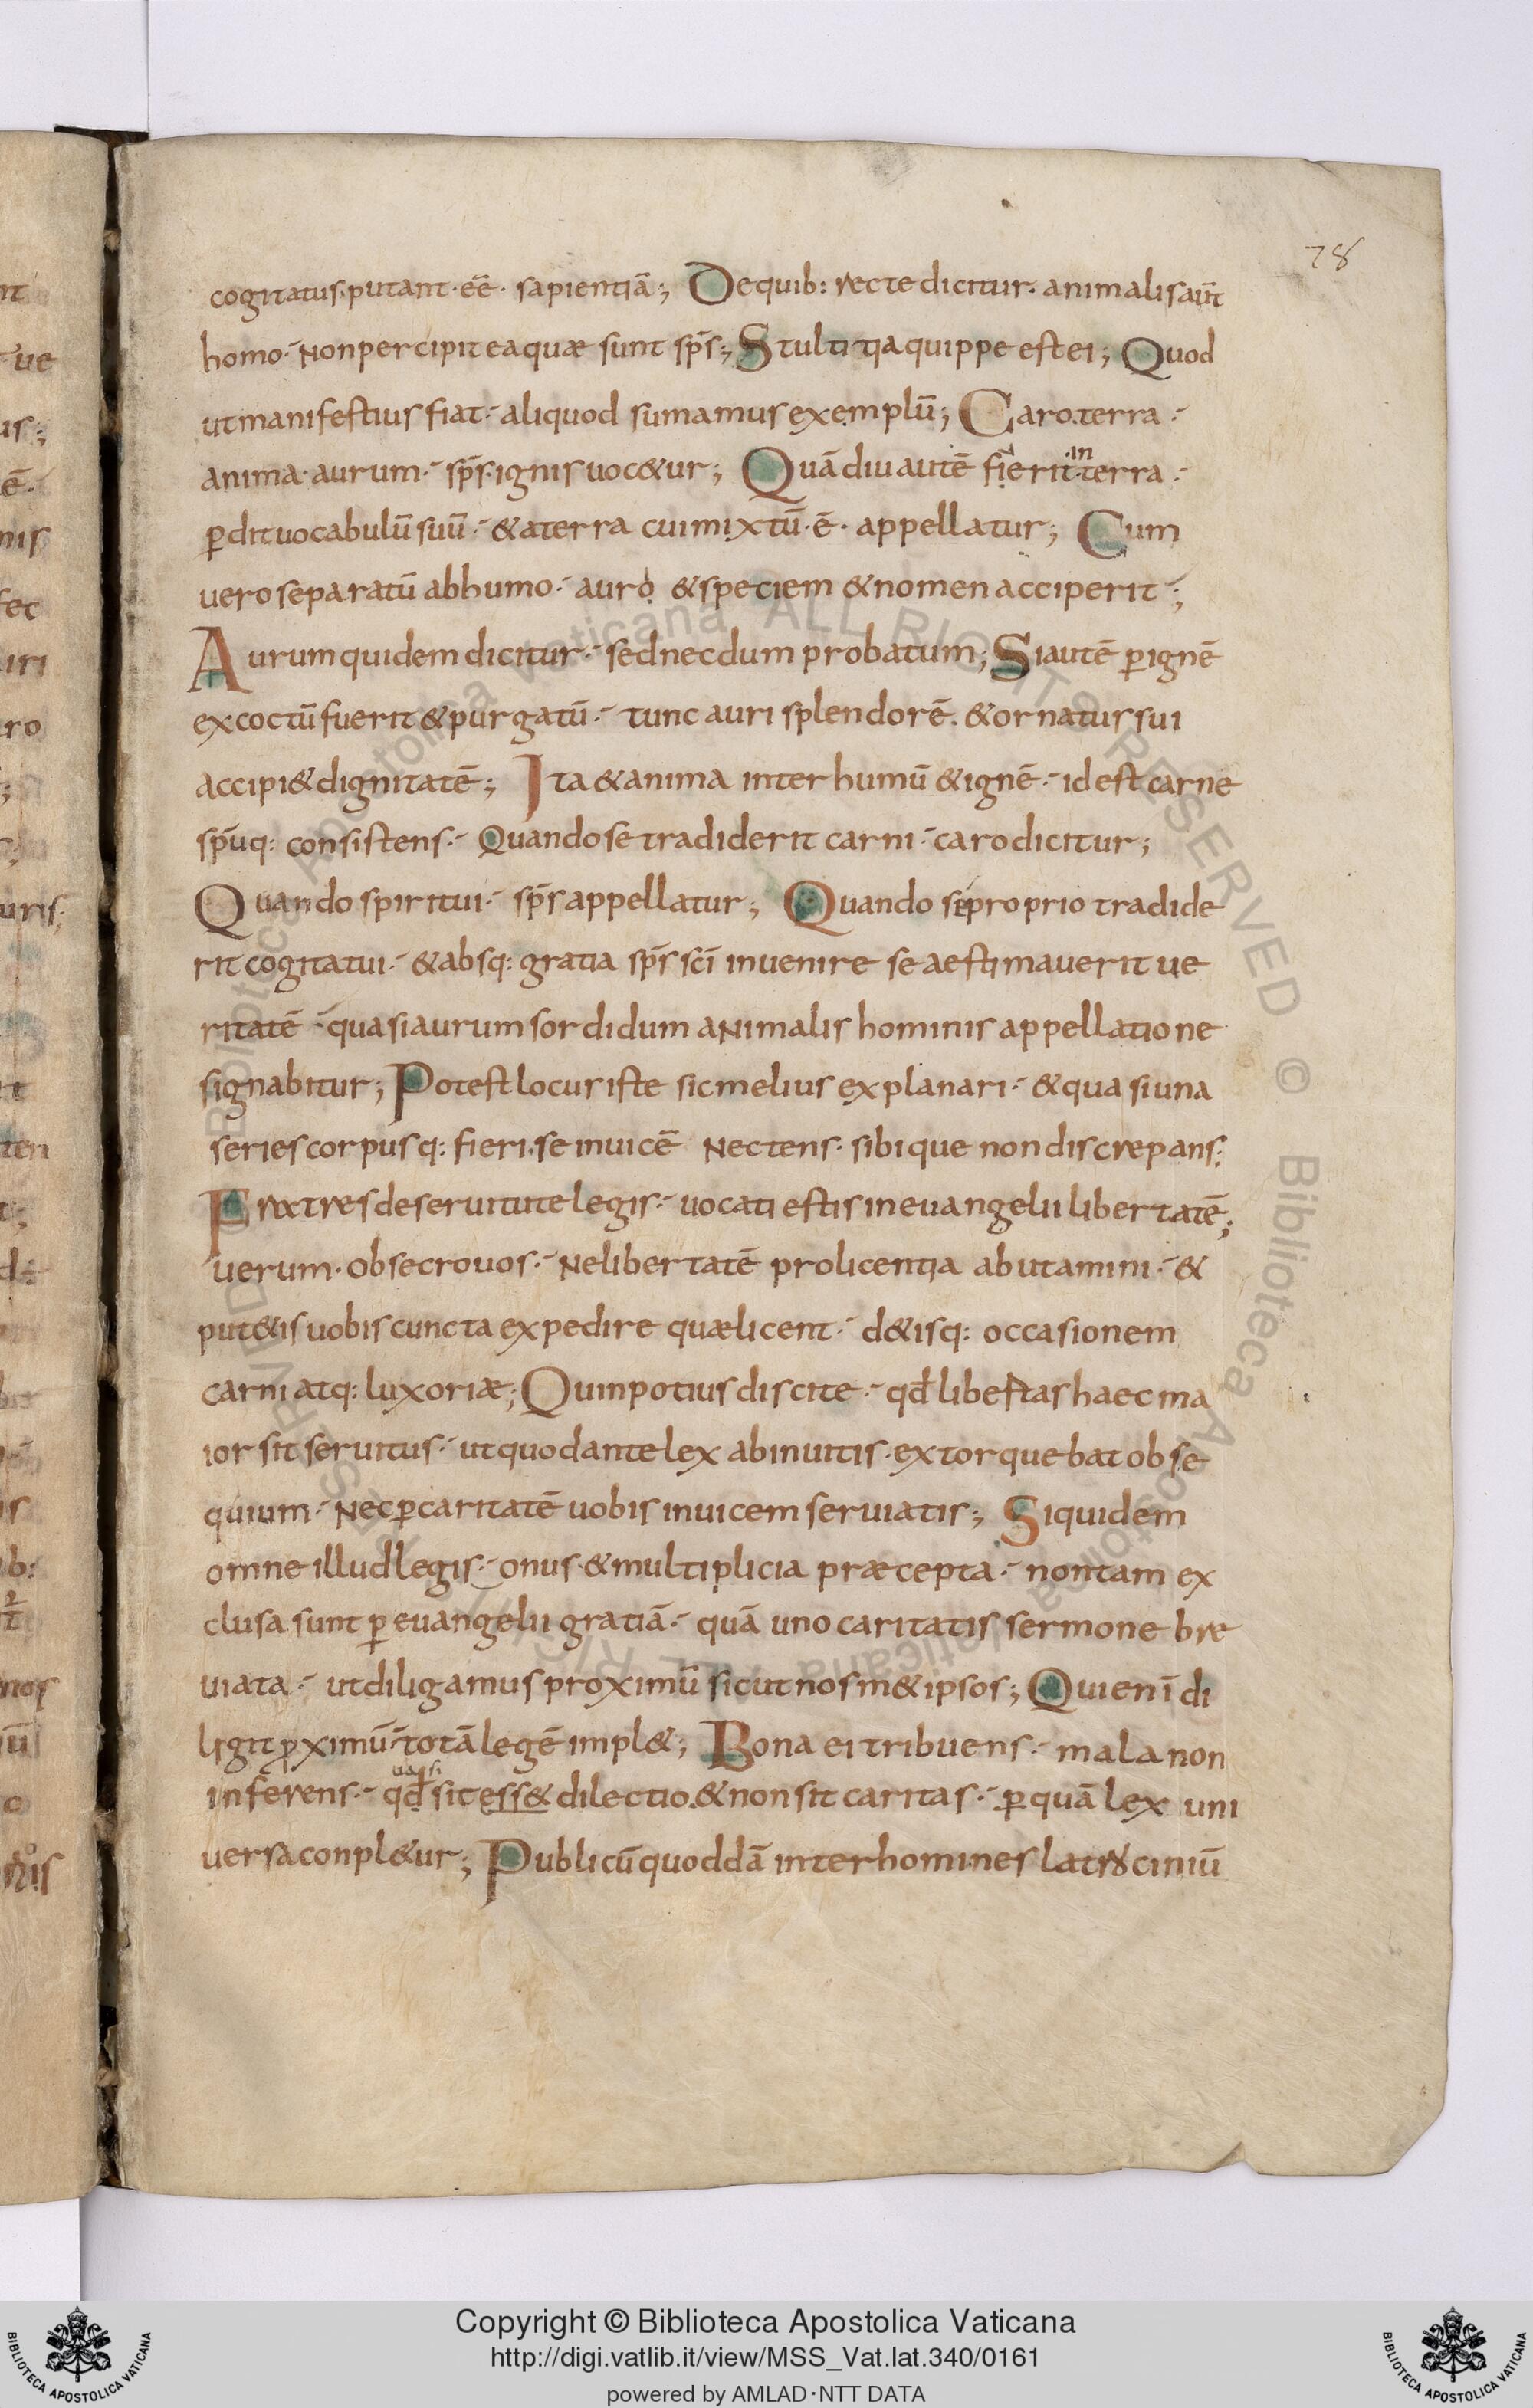 78
cogitatus· putant· eē· sapientiā; De quib: recte dicitur· animalis aut̄
homo· Non percipit ea quæ sunt sp̄s; Stultitia quippe est ei; Quod
ut manifestius fiat· aliquod sumamus exemplū; Caro· terra·
anima· aurum· sp̄s· ignis uoc&ur; Quādiu autē fierit in terra·
ꝑdit uocabulū suū· & a terra cui mixtū· ē· appellatur; Cum
uero separatū ab humo· auro & speciem & nomen acciperit;
Aurum quidem dicitur· sed necdum probatum; Si autē ꝑ ignē
excoctū fuerit & purgatū· tunc auri splendorē· & ornatus sui
accipi& dignitatē; Ita & anima inter humū & ignē· id est carne
sp̄uq: consistens· Quando se tradiderit carni· caro dicitur;
Quando spiritui· sp̄s appellatur; Quando se proprio tradide
rit cogitatui· & absq: gratia sp̄s sc̄i inuenire se aestimauerit ue
ritatē· quasi aurum sordidum aNimalis hominis appellatione
signabitur; Potest locus iste sic melius explanari· & quasi una
series corpusq: fieri· se inuicē Nectens· sibique non discrepans;
Fratres de seruitute legis· uocati estis in euangelii libertatē;
uerum· obsecro uos· Ne libertatē pro licentia abutamini· &
put&is uobis cuncta expedire quæ licent· d&isq: occasionem
carni atq: luxoriæ; Quin potius discite· qđ libertas haec ma
ior sit seruitus· ut quod ante lex ab inuitis· extorquebat obse
quium· Nec ꝑ caritatē uobis inuicem seruiatis; Siquidem
omne illud legis· onus· & multiplicia præcepta· non tam ex
clusa sunt ꝑ euangelii gratiā· quā uno caritatis sermone bre
uiata· ut diligamus proximū sicut nosm&ipsos; Qui enī di
ligit ꝓximū· totā legē impl&; Bona ei tribuens· mala non
inferens· qđ sit ess& dilectio· & non sit caritas· ꝑ quā lex uni
uersa conpl&ur; Publicū quoddā inter homines latrociniū
Copyright © Biblioteca Apostolica Vaticana
http://digi.vatlib.it/view/MSS_Vat.lat.340/0161
powered by AMLAD·NTT DATA
BIBLIOTECA APOSTOLICA VATICANA
BIBLIOTECA APOSTOLICA VATICANA